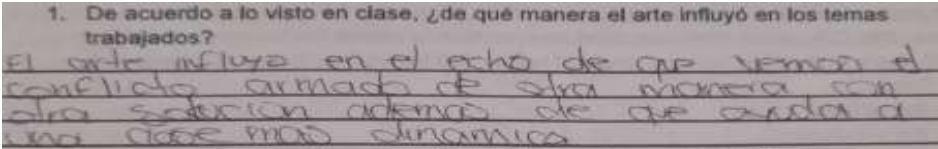 1. De acuerdo a lo visto en clase, ¿de qué manera el arte influyó en los temas
trabajados?
El arte influyo en el echo de que vemos el
conflicto armado de otra manera con
otra solucion ademas de que ayuda a
una clase mas dinamica